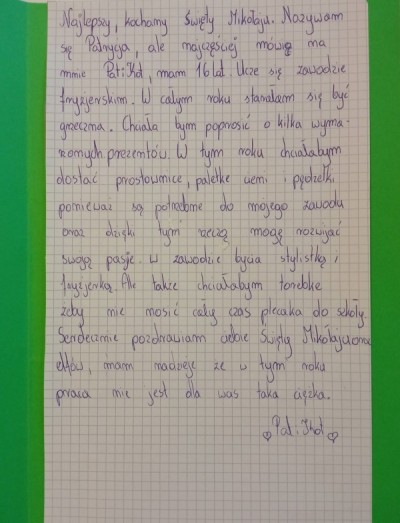 Najlepszy, kochany Święty Mikołaju. Nazywam
się Patrycja, ale najczęściej mówią na
mnie Pati, mam 16 lat. Ucze się zawodzie
fryzjerskim. W całym roku starałam się być
grzeczna. Chciała bym poprosić o kilka wyma-
rzonych prezentów W tym roku chciałabym
dostać prostownice, paletke cieni i pędzelki
ponieważ są potrzebne do mojego zawodu
oraz dzięki tym rzeczą mogę rozwijać
swoją pasje. w zawodzie bycia stylistką i
fryzjerką. Ale także chciałabym torebke
żeby nie nosić cały czas plecaka do szkoły.
Serdecznie pozdrawiam ciebie Święty Mikołaju oraz
elfów, mam nadzieje że w tym roku
praca nie jest dla was taka ciężka.
Pati